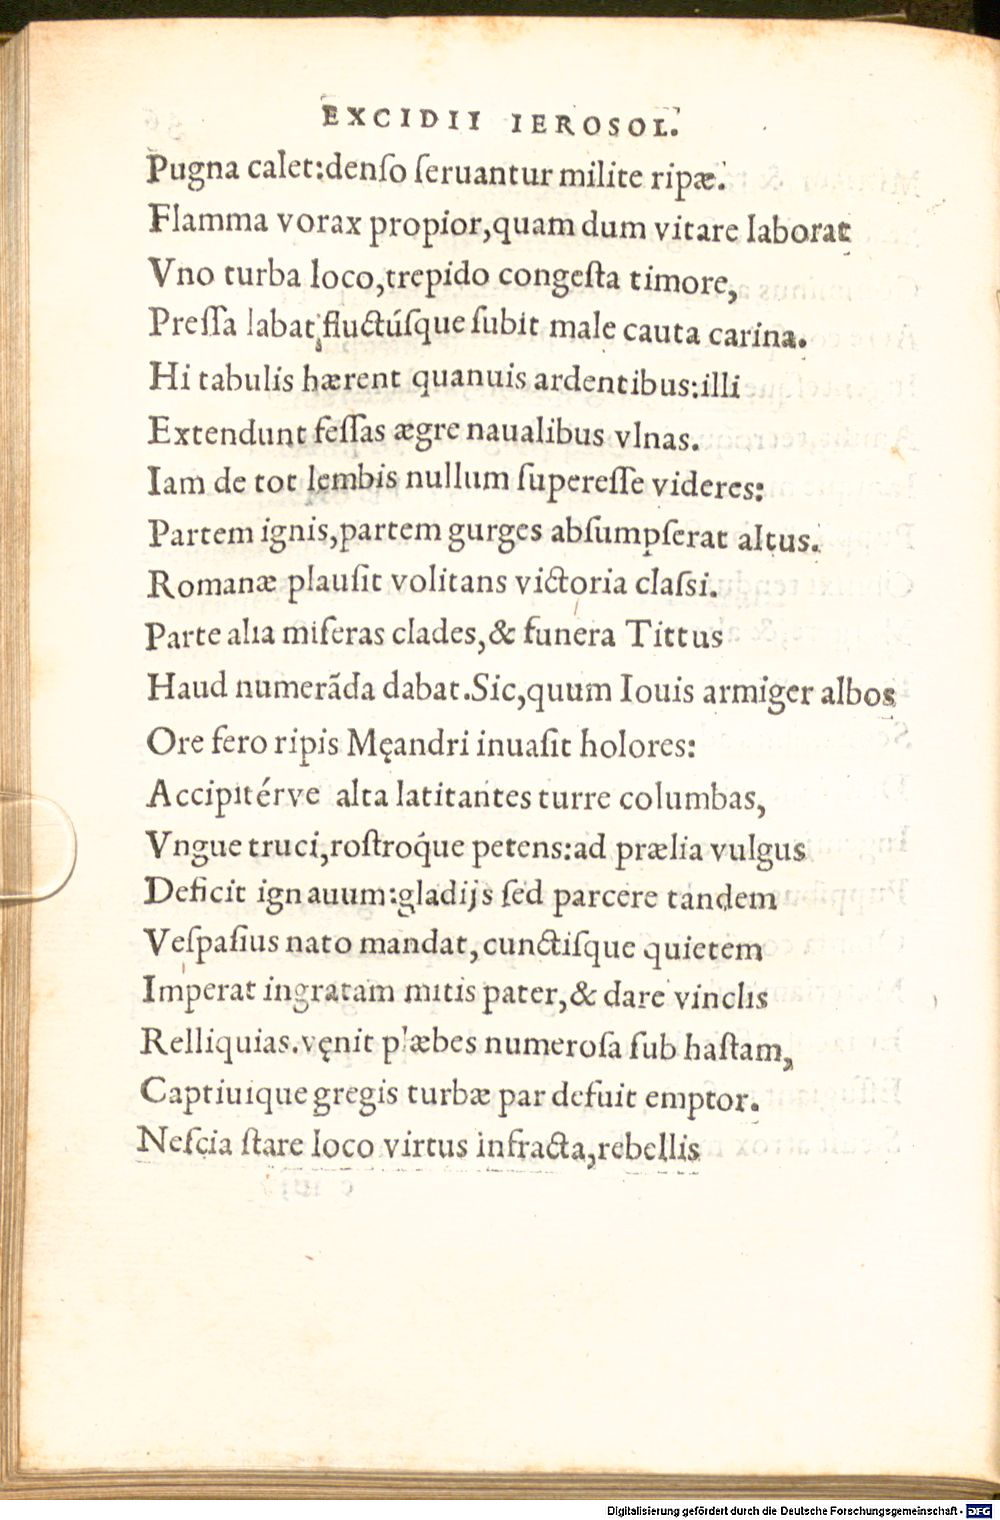 EXCIDII IEROSOL.
Pugna calet:denſo ſeruantur milite ripæ.
Flamma vorax propior,quam dum vitare laborat
Vno turba loco,trepido congeſta timore,
Preſſa labat,fluctúſque ſubit male cauta carina.
Hi tabulis hærent quanuis ardentibus:illi
Extendunt feſſas ægre naualibus vlnas.
Iam de tot lembis nullum ſupereſſe videres:
Partem ignis,partem gurges abſumpſerat altus.
Romanæ plauſit volitans victoria claſsi.
Parte alia miſeras clades,& funera Tittus
Haud numerãda dabat.Sic,quum Iouis armiger albos
Ore fero ripis Męandri inuaſit holores:
Accipitérve alta latitantes turre columbas,
Vngue truci,roſtroq́ue petens:ad prælia vulgus
Deficit ignauum:gladijs ſed parcere tandem
Veſpaſius nato mandat,cunctiſque quietem
Imperat ingratam mitis pater,& dare vinclis
Relliquias.vęnit plæbes numeroſa ſub haſtam,
Captiuique gregis turbæ par defuit emptor.
Neſcia ſtare loco virtus infracta,rebellis
Digitalisierung gefördert durch die Deutsche Forschungsgemeinschaft - DFG